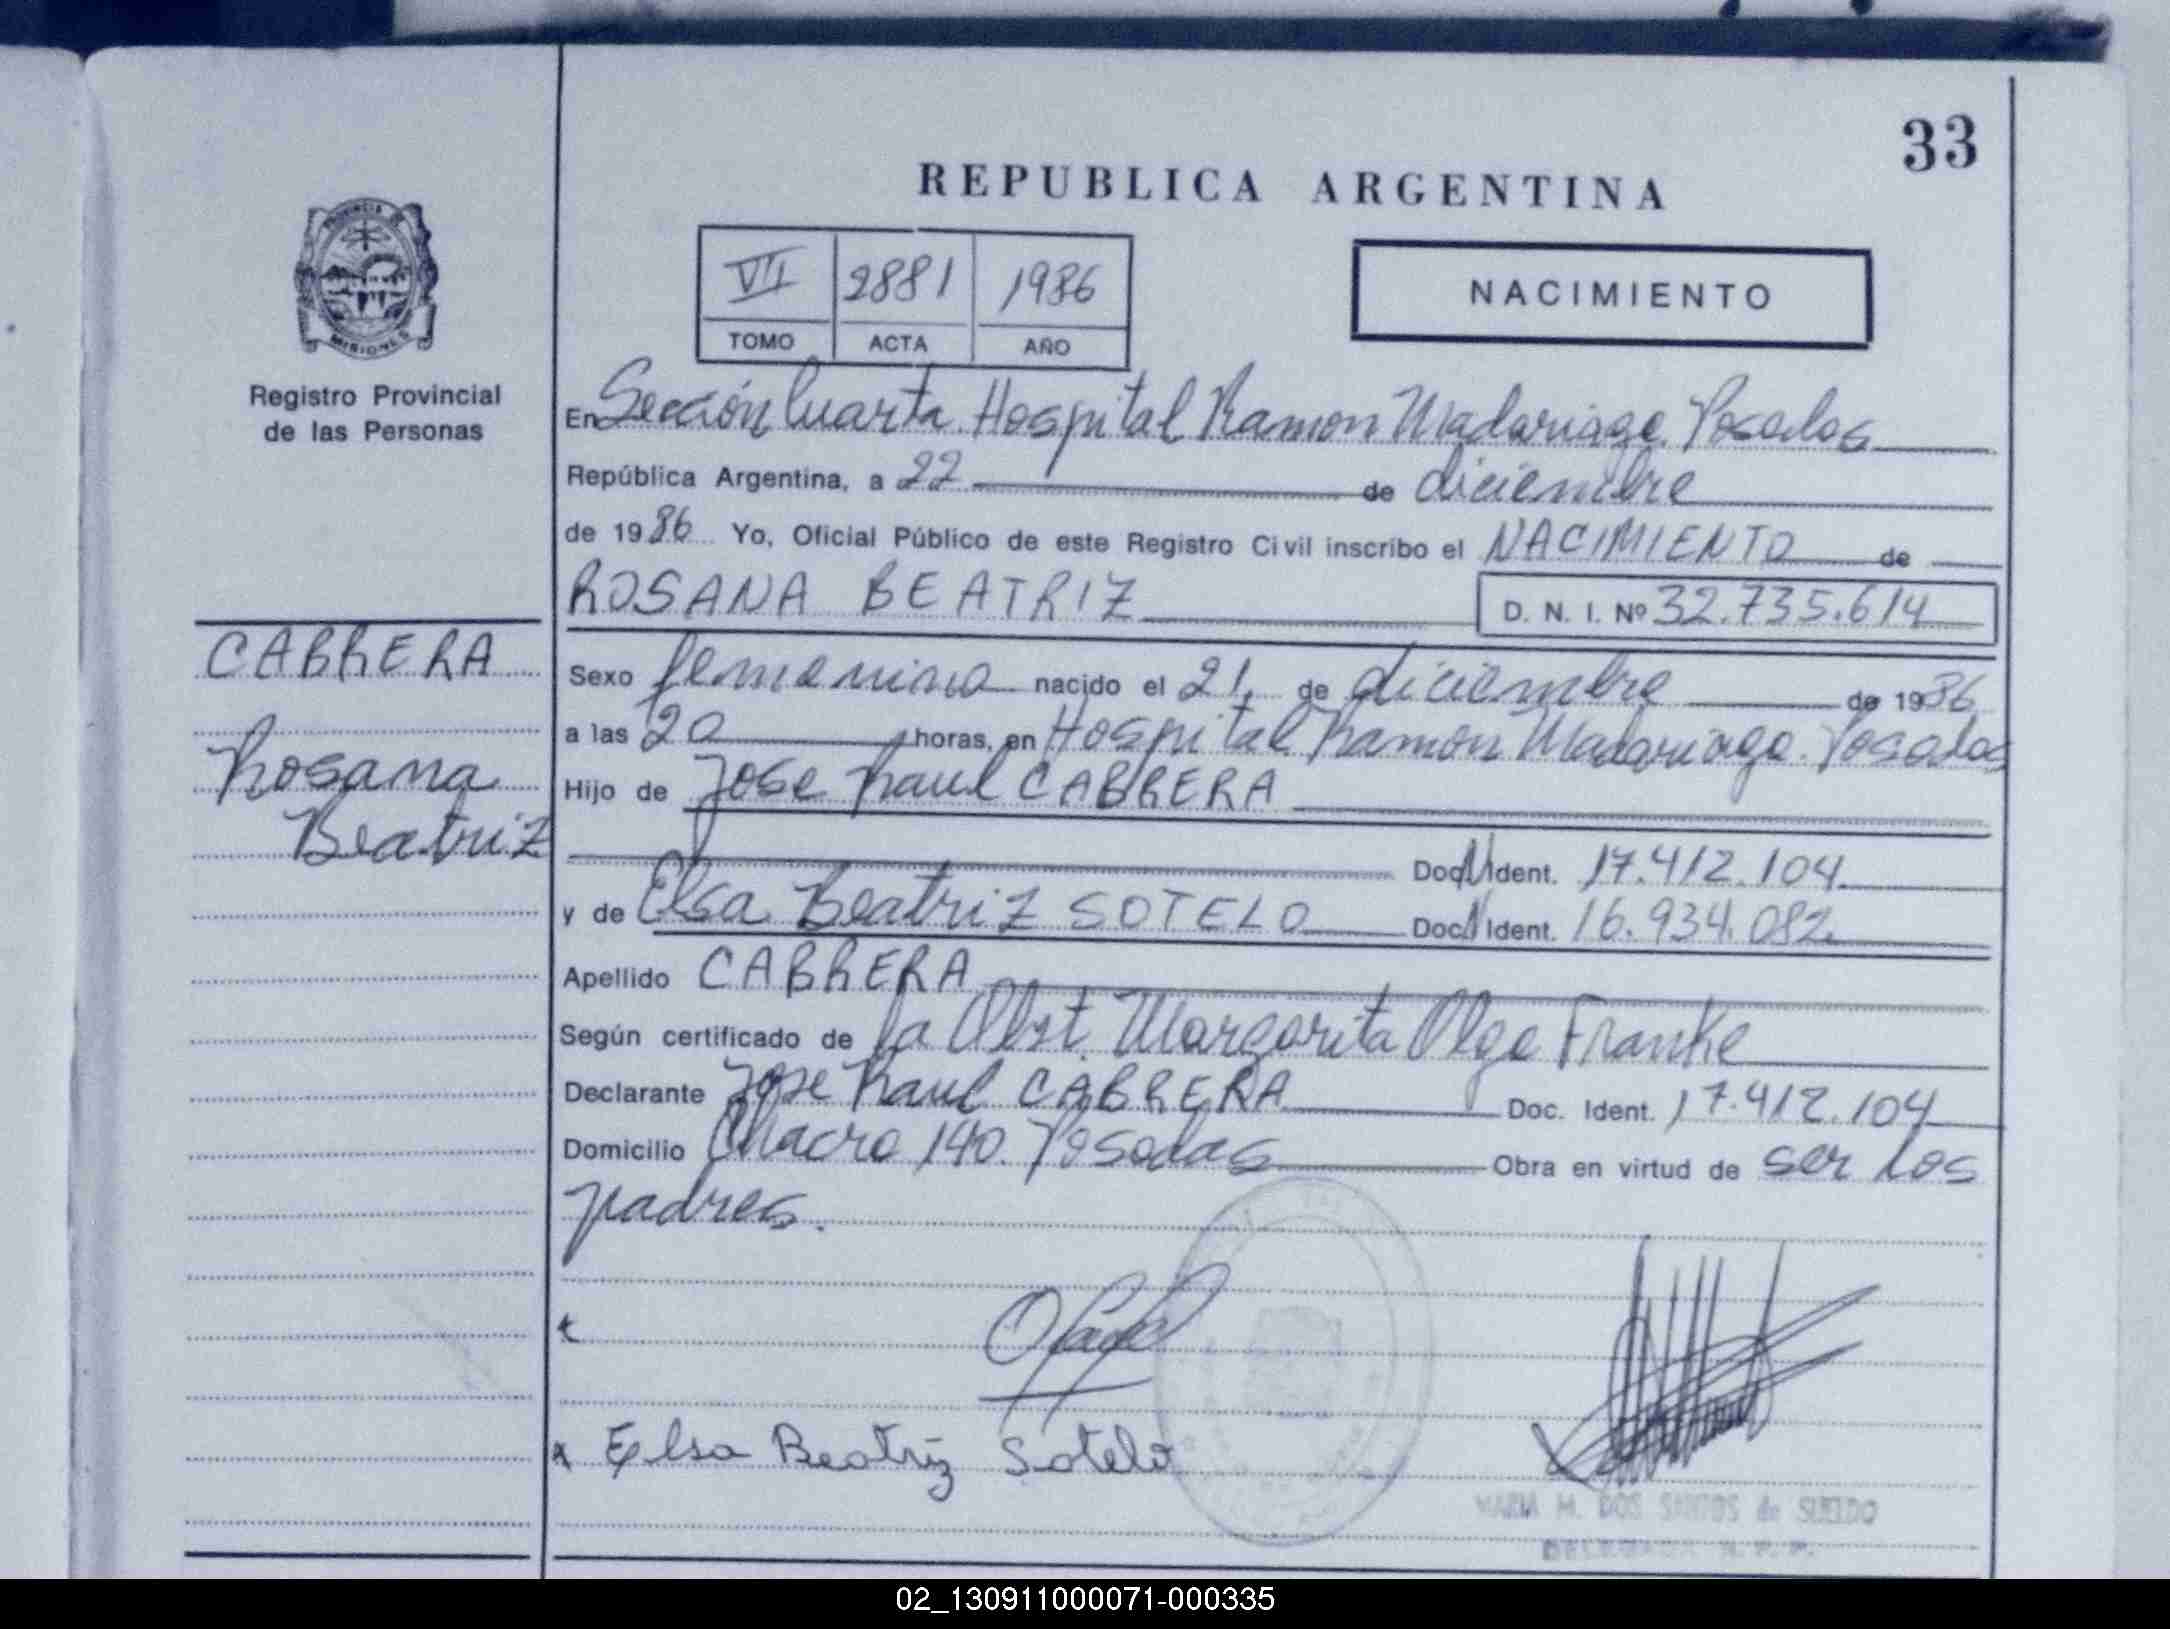 33
REPUBLICA ARGENTINA
PROVINCIA DE
MISIONES
VII 2881 1986
TOMO ACTA AÑO
NACIMIENTO
Registro Provincial
de las Personas
En Sección Cuarta Hospital Ramon Madariaga. Posadas
República Argentina, a 22 de diciembre
de 1986 Yo, Oficial Público de este Registro Civil inscribo el NACIMIENTO de
ROSANA BEATRIZ D. N. I. Nº 32.735.614
CABRERA
Rosana
Beatriz
Sexo femenino nacido el 21 de diciembre de 1986
a las 20 horas, en Hospital Ramon Madariaga. Posadas
Hijo de Jose Raul CABRERA
Doc. Ident. 17.412.104
y de Elsa Beatriz SOTELO Doc. Ident. 16.934.082
Apellido CABRERA
Según certificado de la Obst. Margarita Olga Franke
Declarante Jose Raul CABRERA Doc. Ident. 17.412.104
Domicilio Chacra 140. Posadas Obra en virtud de ser los
padres.
x Elsa Beatriz Sotelo
MARIA M. DOS SANTOS de SUELDO
DELEGADA R. P. P.
02_130911000071-000335